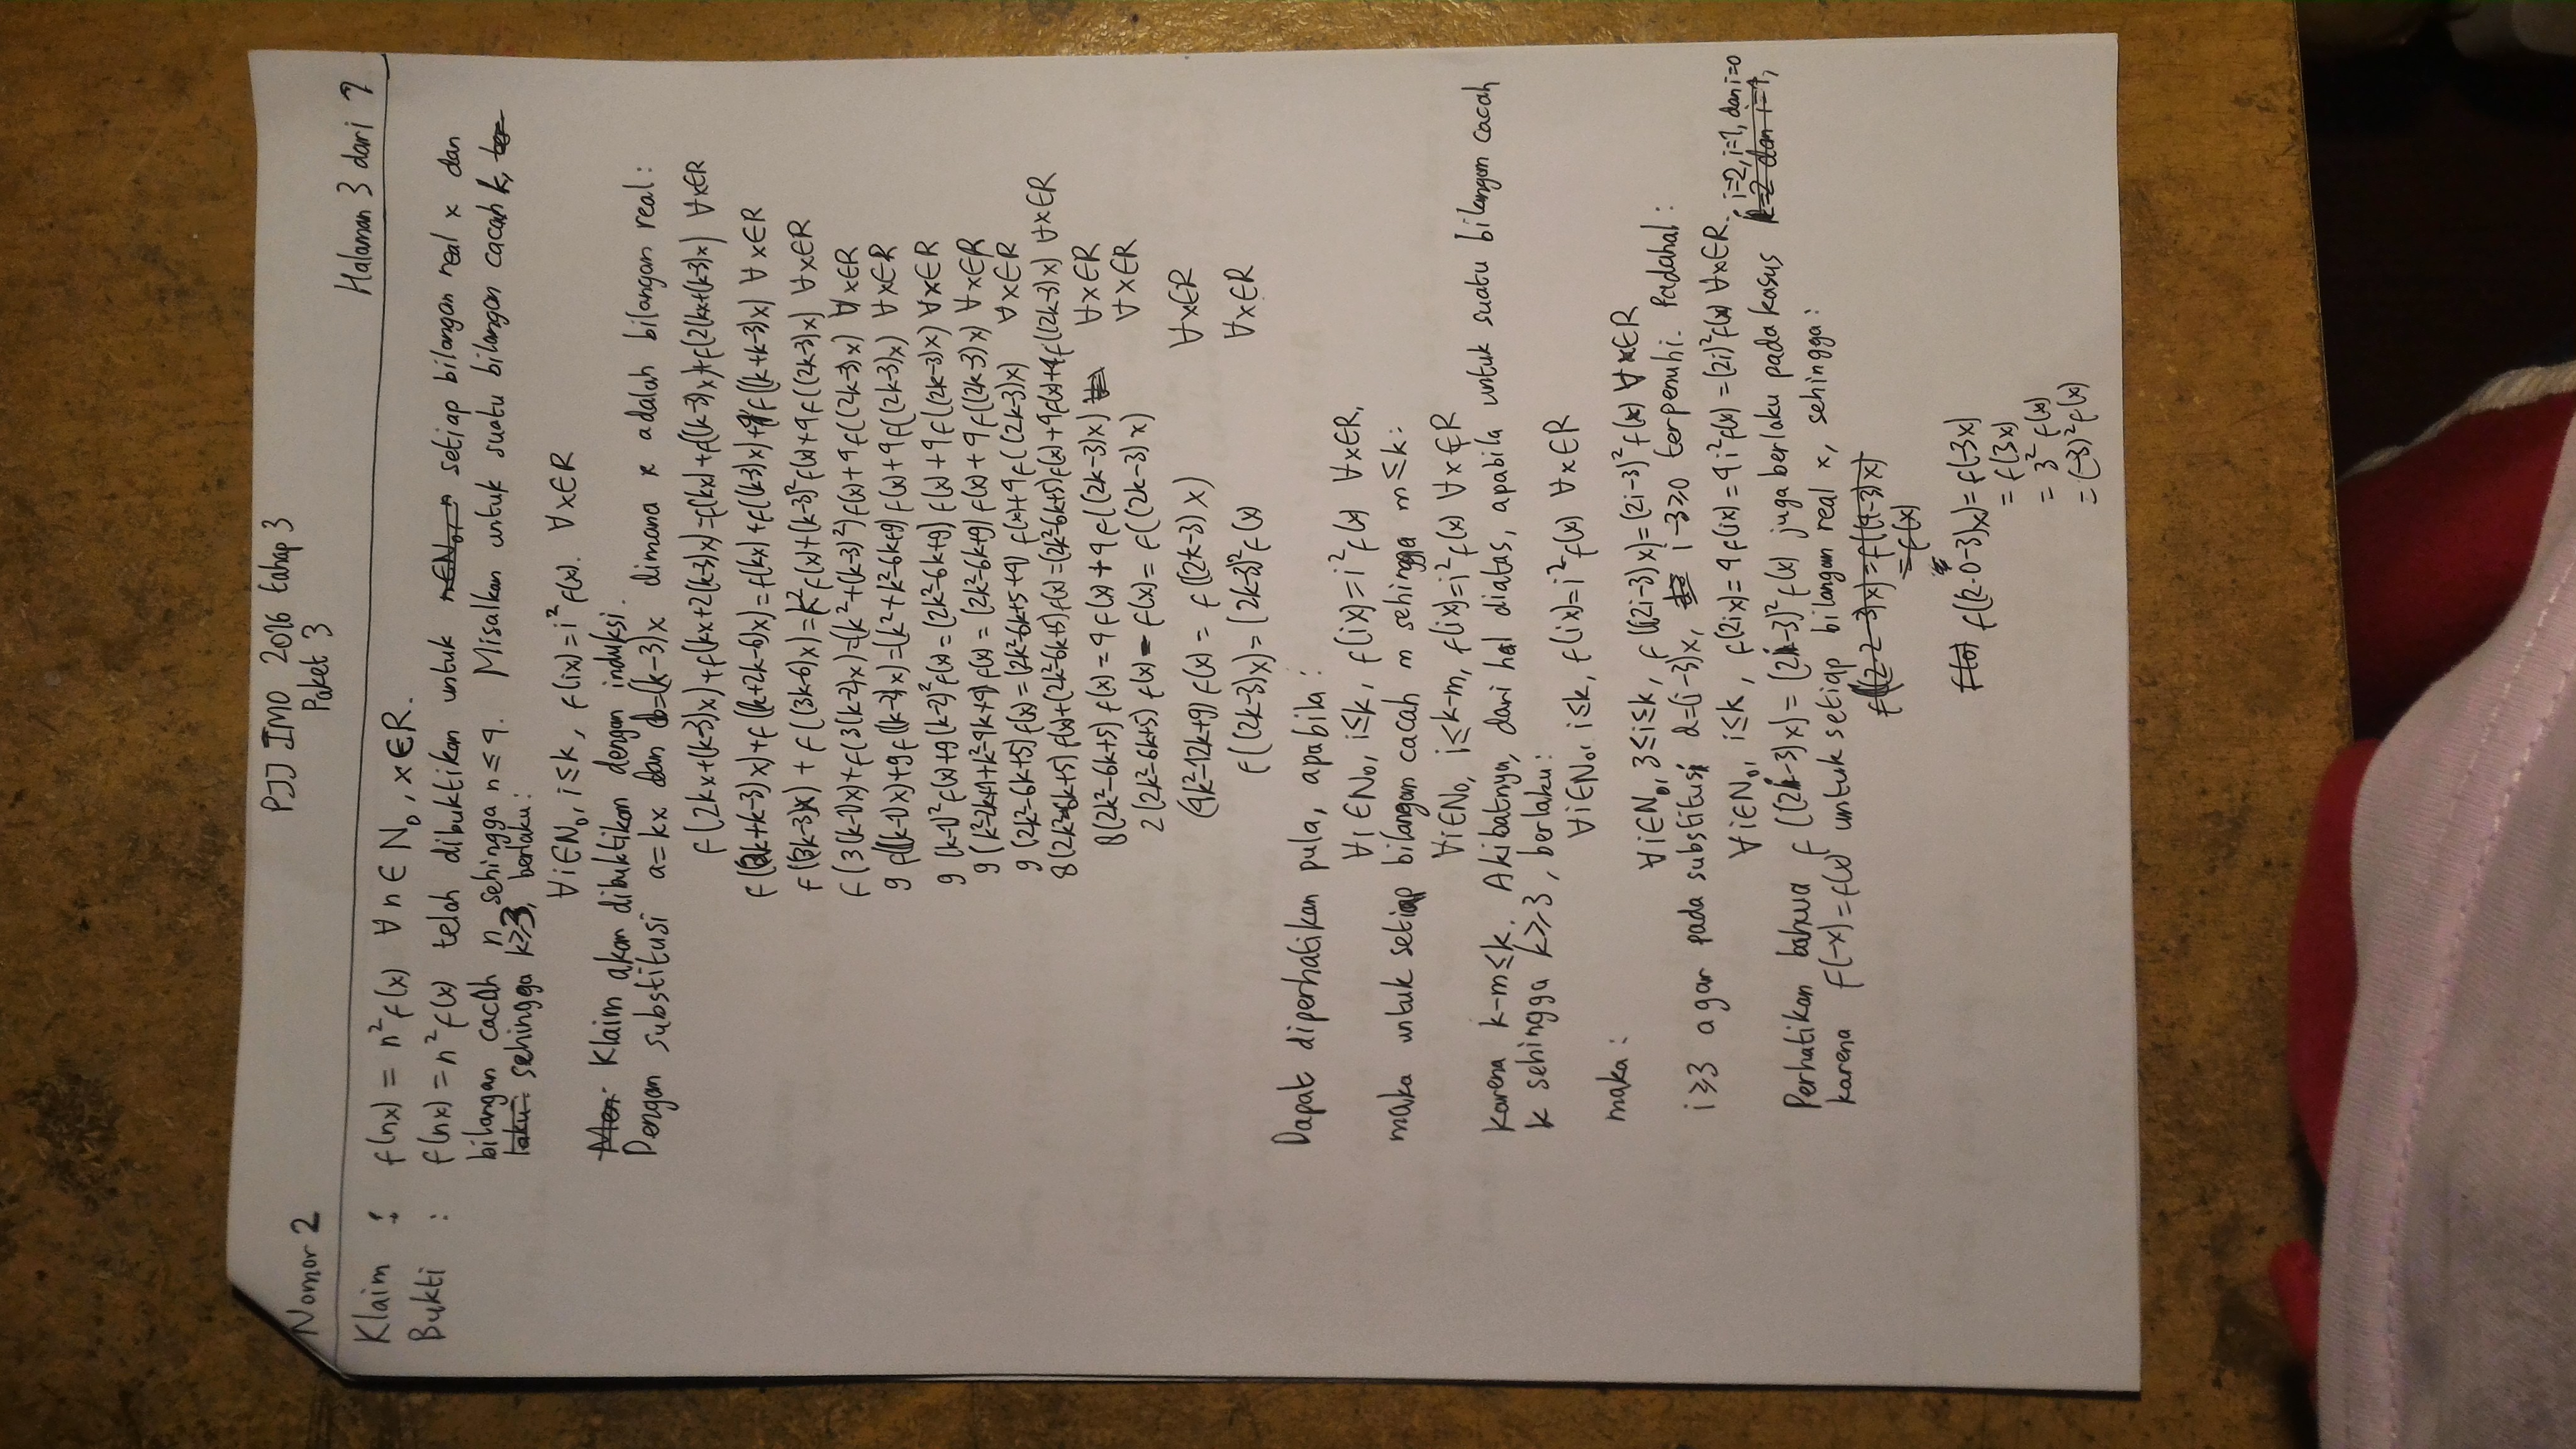 PJJ IMO 2016 tahap 3
Nomor 2
Paket 3
Halaman 3 dari 7
Klaim : f(nx) = n²f(x) ∀n∈N₀, x∈R.
Bukti : f(nx)=n²f(x) telah dibuktikan untuk setiap bilangan real x dan
bilangan cacah n sehingga n≤4. Misalkan untuk suatu bilangan cacah k,
sehingga k≥3, berlaku:
∀i∈N₀, i≤k, f(ix)=i²f(x). ∀x∈R
Klaim akan dibuktikan dengan induksi.
Dengan substitusi a=kx dan d=(k-3)x dimana x adalah bilangan real:
f(2kx+(k-3)x)+f(kx+2(k-3)x)=f(kx)+f((k-3)x)+f(2(kx+(k-3)x) ∀x∈R
f((2k+k-3)x)+f((k+2k-6)x)=f(kx)+f((k-3)x)+4f((k+k-3)x) ∀x∈R
f((3k-3)x) + f((3k-6)x)=k²f(x)+(k-3)²f(x)+4f((2k-3)x) ∀x∈R
f(3(k-1)x)+f(3(k-2)x)=(k²+(k-3)²)f(x)+4f((2k-3)x) ∀x∈R
9f((k-1)x)+9f((k-2)x)=(k²+k²-6k+9)f(x)+4f((2k-3)x) ∀x∈R
9(k-1)²f(x)+9(k-2)²f(x)=(2k²-6k+9)f(x)+4f((2k-3)x) ∀x∈R
9(k²-2k+1+k²-4k+4)f(x)=(2k²-6k+9)f(x)+4f((2k-3)x) ∀x∈R
9(2k²-6k+5)f(x)=(2k²-6k+5+4)f(x)+4f((2k-3)x) ∀x∈R
8(2k²-6k+5)f(x)+(2k²-6k+5)f(x)=(2k²-6k+5)f(x)+4f(x)+4f((2k-3)x) ∀x∈R
8(2k²-6k+5)f(x)=4f(x)+4f((2k-3)x) ∀x∈R
2(2k²-6k+5)f(x)-f(x)=f((2k-3)x) ∀x∈R
(4k²-12k+9)f(x)=f((2k-3)x) ∀x∈R
f((2k-3)x)=(2k-3)²f(x) ∀x∈R
Dapat diperhatikan pula, apabila:
∀i∈N₀, i≤k, f(ix)=i²f(x) ∀x∈R,
maka untuk setiap bilangan cacah m sehingga m≤k:
∀i∈N₀, i≤k-m, f(ix)=i²f(x) ∀x∈R
karena k-m≤k. Akibatnya, dari hal diatas, apabila untuk suatu bilangan cacah
k sehingga k≥3, berlaku:
∀i∈N₀, i≤k, f(ix)=i²f(x) ∀x∈R
maka:
∀i∈N₀, 3≤i≤k, f((2i-3)x)=(2i-3)²f(x) ∀x∈R
i≥3 agar pada substitusi d=(i-3)x, i-3≥0 terpenuhi. Padahal:
∀i∈N₀, i≤k, f(2ix)=4f(ix)=4i²f(x)=(2i)²f(x) ∀x∈R.
Perhatikan bahwa f((2i-3)x)=(2i-3)²f(x) juga berlaku pada kasus i=2, i=1, dan i=0
karena f(-x)=f(x) untuk setiap bilangan real x, sehingga:
f((2·2-3)x)=f((4-3)x)
=f(x)
f((2·0-3)x)=f(-3x)
=f(3x)
=3²f(x)
=(-3)²f(x)